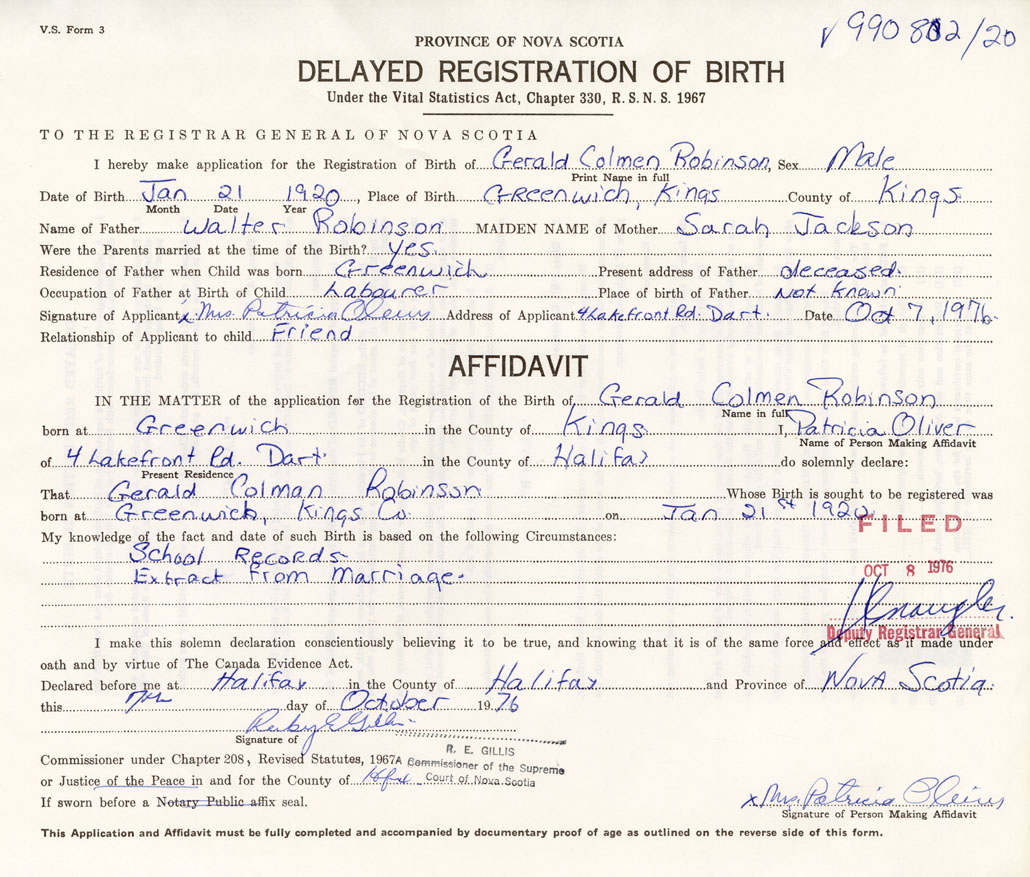 V.S. Form 3
PROVINCE OF NOVA SCOTIA
DELAYED REGISTRATION OF BIRTH
Under the Vital Statistics Act, Chapter 330, R. S. N. S. 1967
TO THE REGISTRAR GENERAL OF NOVA SCOTIA
I hereby make application for the Registration of Birth of Gerald Colmen Robinson, Sex Male
Print Name in full
Date of Birth Jan 21 1920, Place of Birth Greenwich, Kings County of Kings
Month Date Year
Name of Father Walter Robinson MAIDEN NAME of Mother Sarah Jackson
Were the Parents married at the time of the Birth? yes.
Residence of Father when Child was born Greenwich Present address of Father deceased.
Occupation of Father at Birth of Child Labourer Place of birth of Father Not Known
Signature of Applicant x Mrs. Patricia Address of Applicant 4 Lakefront Rd. Dart. Date Oct 7, 1976
Relationship of Applicant to child Friend
AFFIDAVIT
IN THE MATTER of the application for the Registration of the Birth of Gerald Colmen Robinson
Name in full
born at Greenwich in the County of Kings I, Patricia Oliver
Name of Person Making Affidavit
of 4 Lakefront Rd. Dart. in the County of Halifax do solemnly declare:
Present Residence
That Gerald Colman Robinson Whose Birth is sought to be registered was
born at Greenwich, Kings Co. on Jan 21st 1920
My knowledge of the fact and date of such Birth is based on the following Circumstances:
School Records
Extract from Marriage.
FILED
OCT 8 1976
Deputy Registrar General
I make this solemn declaration conscientiously believing it to be true, and knowing that it is of the same force and effect as if made under
oath and by virtue of The Canada Evidence Act.
Declared before me at Halifax in the County of Halifax and Province of Nova Scotia
this 7th day of October 1976
Ruby E Gillis
Signature of
R. E. GILLIS
A Commissioner of the Supreme
Court of Nova Scotia
Commissioner under Chapter 208, Revised Statutes, 1967
or Justice of the Peace in and for the County of Hfx
If sworn before a Notary Public affix seal.
x Mrs. Patricia
Signature of Person Making Affidavit
This Application and Affidavit must be fully completed and accompanied by documentary proof of age as outlined on the reverse side of this form.